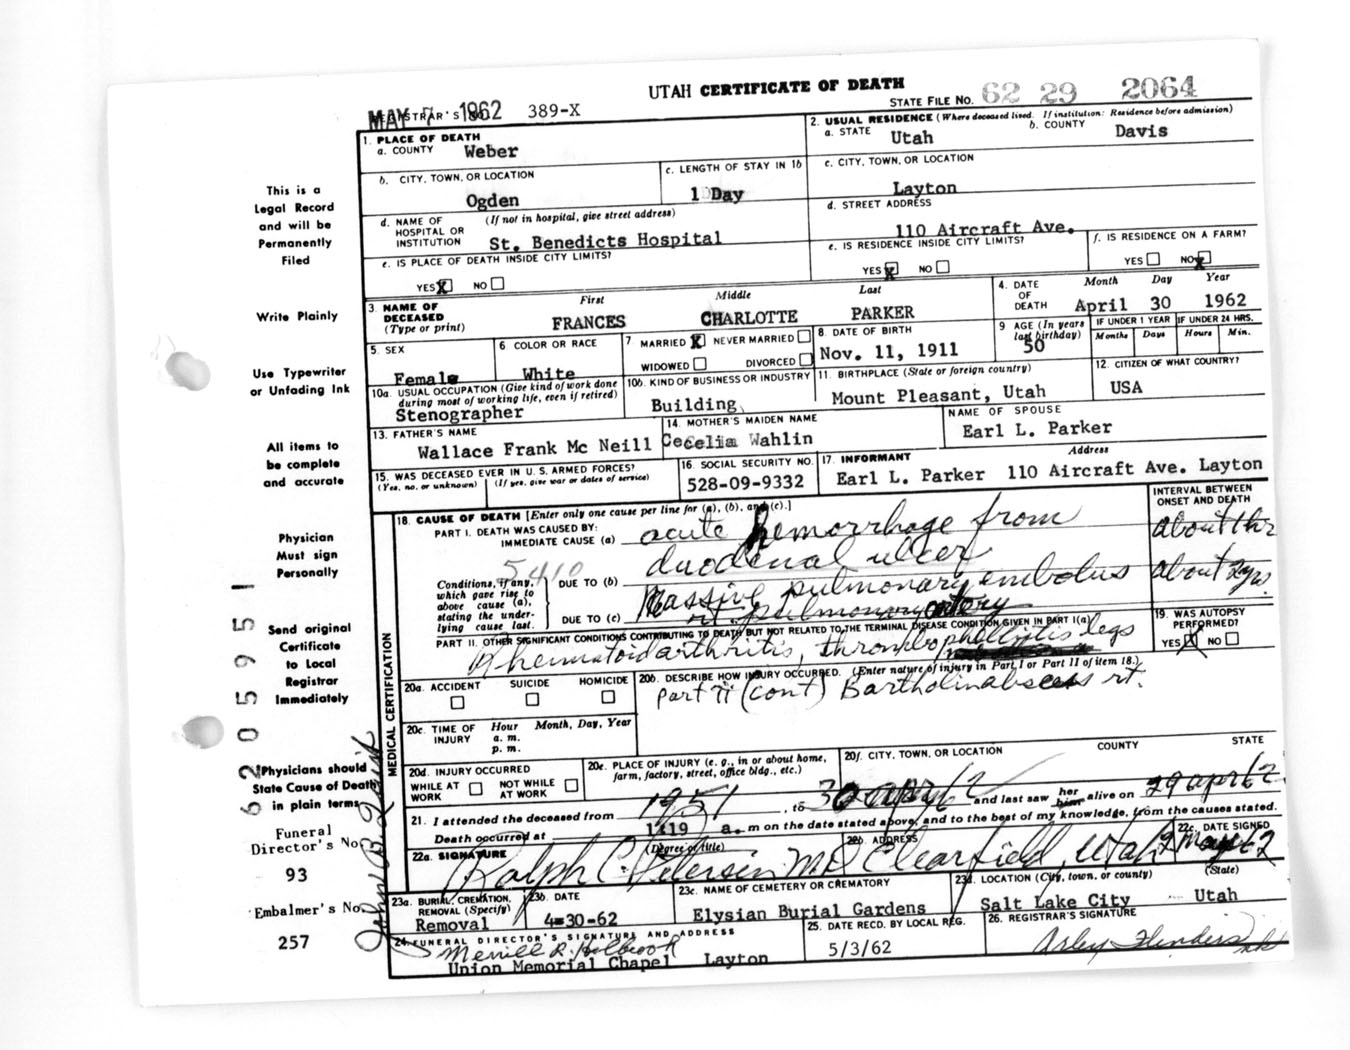 UTAH CERTIFICATE OF DEATH
MAY 7 1962 REGISTRAR'S NO. 389-X STATE FILE NO. 62 29 2064
1. PLACE OF DEATH
a. COUNTY Weber
2. USUAL RESIDENCE (Where deceased lived. If institution: Residence before admission)
a. STATE Utah b. COUNTY Davis
b. CITY, TOWN, OR LOCATION Ogden
c. LENGTH OF STAY IN 1b 1 Day
c. CITY, TOWN, OR LOCATION Layton
d. NAME OF HOSPITAL OR INSTITUTION (If not in hospital, give street address) St. Benedicts Hospital
d. STREET ADDRESS 110 Aircraft Ave.
e. IS PLACE OF DEATH INSIDE CITY LIMITS? YES X NO
e. IS RESIDENCE INSIDE CITY LIMITS? YES X NO
f. IS RESIDENCE ON A FARM? YES NO X
3. NAME OF DECEASED (Type or print) First FRANCES Middle CHARLOTTE Last PARKER
4. DATE OF DEATH Month April Day 30 Year 1962
5. SEX Female
6 COLOR OR RACE White
7 MARRIED X NEVER MARRIED WIDOWED DIVORCED
8. DATE OF BIRTH Nov. 11, 1911
9 AGE (In years last birthday) 50
IF UNDER 1 YEAR Months Days IF UNDER 24 HRS. Hours Min.
10a. USUAL OCCUPATION (Give kind of work done during most of working life, even if retired) Stenographer
10b. KIND OF BUSINESS OR INDUSTRY Building
11. BIRTHPLACE (State or foreign country) Mount Pleasant, Utah
12. CITIZEN OF WHAT COUNTRY? USA
13. FATHER'S NAME Wallace Frank Mc Neill
14. MOTHER'S MAIDEN NAME Cecelia Wahlin
NAME OF SPOUSE Earl L. Parker
15. WAS DECEASED EVER IN U. S. ARMED FORCES? (Yes, no, or unknown) (If yes, give war or dates of service)
16. SOCIAL SECURITY NO. 528-09-9332
17. INFORMANT Address Earl L. Parker 110 Aircraft Ave. Layton
18. CAUSE OF DEATH [Enter only one cause per line for (a), (b), and (c).]
INTERVAL BETWEEN ONSET AND DEATH
PART I. DEATH WAS CAUSED BY:
IMMEDIATE CAUSE (a) acute hemorrhage from about 1 hr
duodenal ulcer
5410
Conditions, if any, which gave rise to above cause (a), stating the underlying cause last.
DUE TO (b) Massive pulmonary embolus about 2yrs.
DUE TO (c) rt. pulmonary artery
PART II. OTHER SIGNIFICANT CONDITIONS CONTRIBUTING TO DEATH BUT NOT RELATED TO THE TERMINAL DISEASE CONDITION GIVEN IN PART I(a)
Rheumatoid arthritis, thrombophlebitis legs
19. WAS AUTOPSY PERFORMED? YES X NO
20a. ACCIDENT SUICIDE HOMICIDE
20b. DESCRIBE HOW INJURY OCCURRED. (Enter nature of injury in Part I or Part II of item 18.)
Part II (cont) Bartholin abscess rt.
20c. TIME OF INJURY Hour a. m. p. m. Month, Day, Year
20d. INJURY OCCURRED WHILE AT WORK NOT WHILE AT WORK
20e. PLACE OF INJURY (e. g., in or about home, farm, factory, street, office bldg., etc.)
20f. CITY, TOWN, OR LOCATION COUNTY STATE
21. I attended the deceased from 1951, to 30 apr 62 and last saw her him alive on 29 apr 62
Death occurred at 1:19 a. m on the date stated above, and to the best of my knowledge, from the causes stated.
22a. SIGNATURE (Degree or title) Ralph C. Petersen MD
22b. ADDRESS Clearfield, Utah
22c. DATE SIGNED 2 May 62
23a. BURIAL, CREMATION, REMOVAL (Specify) Removal
23b. DATE 4-30-62
23c. NAME OF CEMETERY OR CREMATORY Elysian Burial Gardens
23d. LOCATION (City, town, or county) (State) Salt Lake City Utah
24. FUNERAL DIRECTOR'S SIGNATURE AND ADDRESS
Merrill R. Holbrook
Union Memorial Chapel Layton
25. DATE RECD. BY LOCAL REG. 5/3/62
26. REGISTRAR'S SIGNATURE
MEDICAL CERTIFICATION
This is a
Legal Record
and will be
Permanently
Filed
Write Plainly
Use Typewriter
or Unfading Ink
All items to
be complete
and accurate
Physician
Must sign
Personally
Send original
Certificate
to Local
Registrar
Immediately
Physicians should
State Cause of Death
in plain terms
Funeral
Director's No.
93
Embalmer's No.
257
62 05951